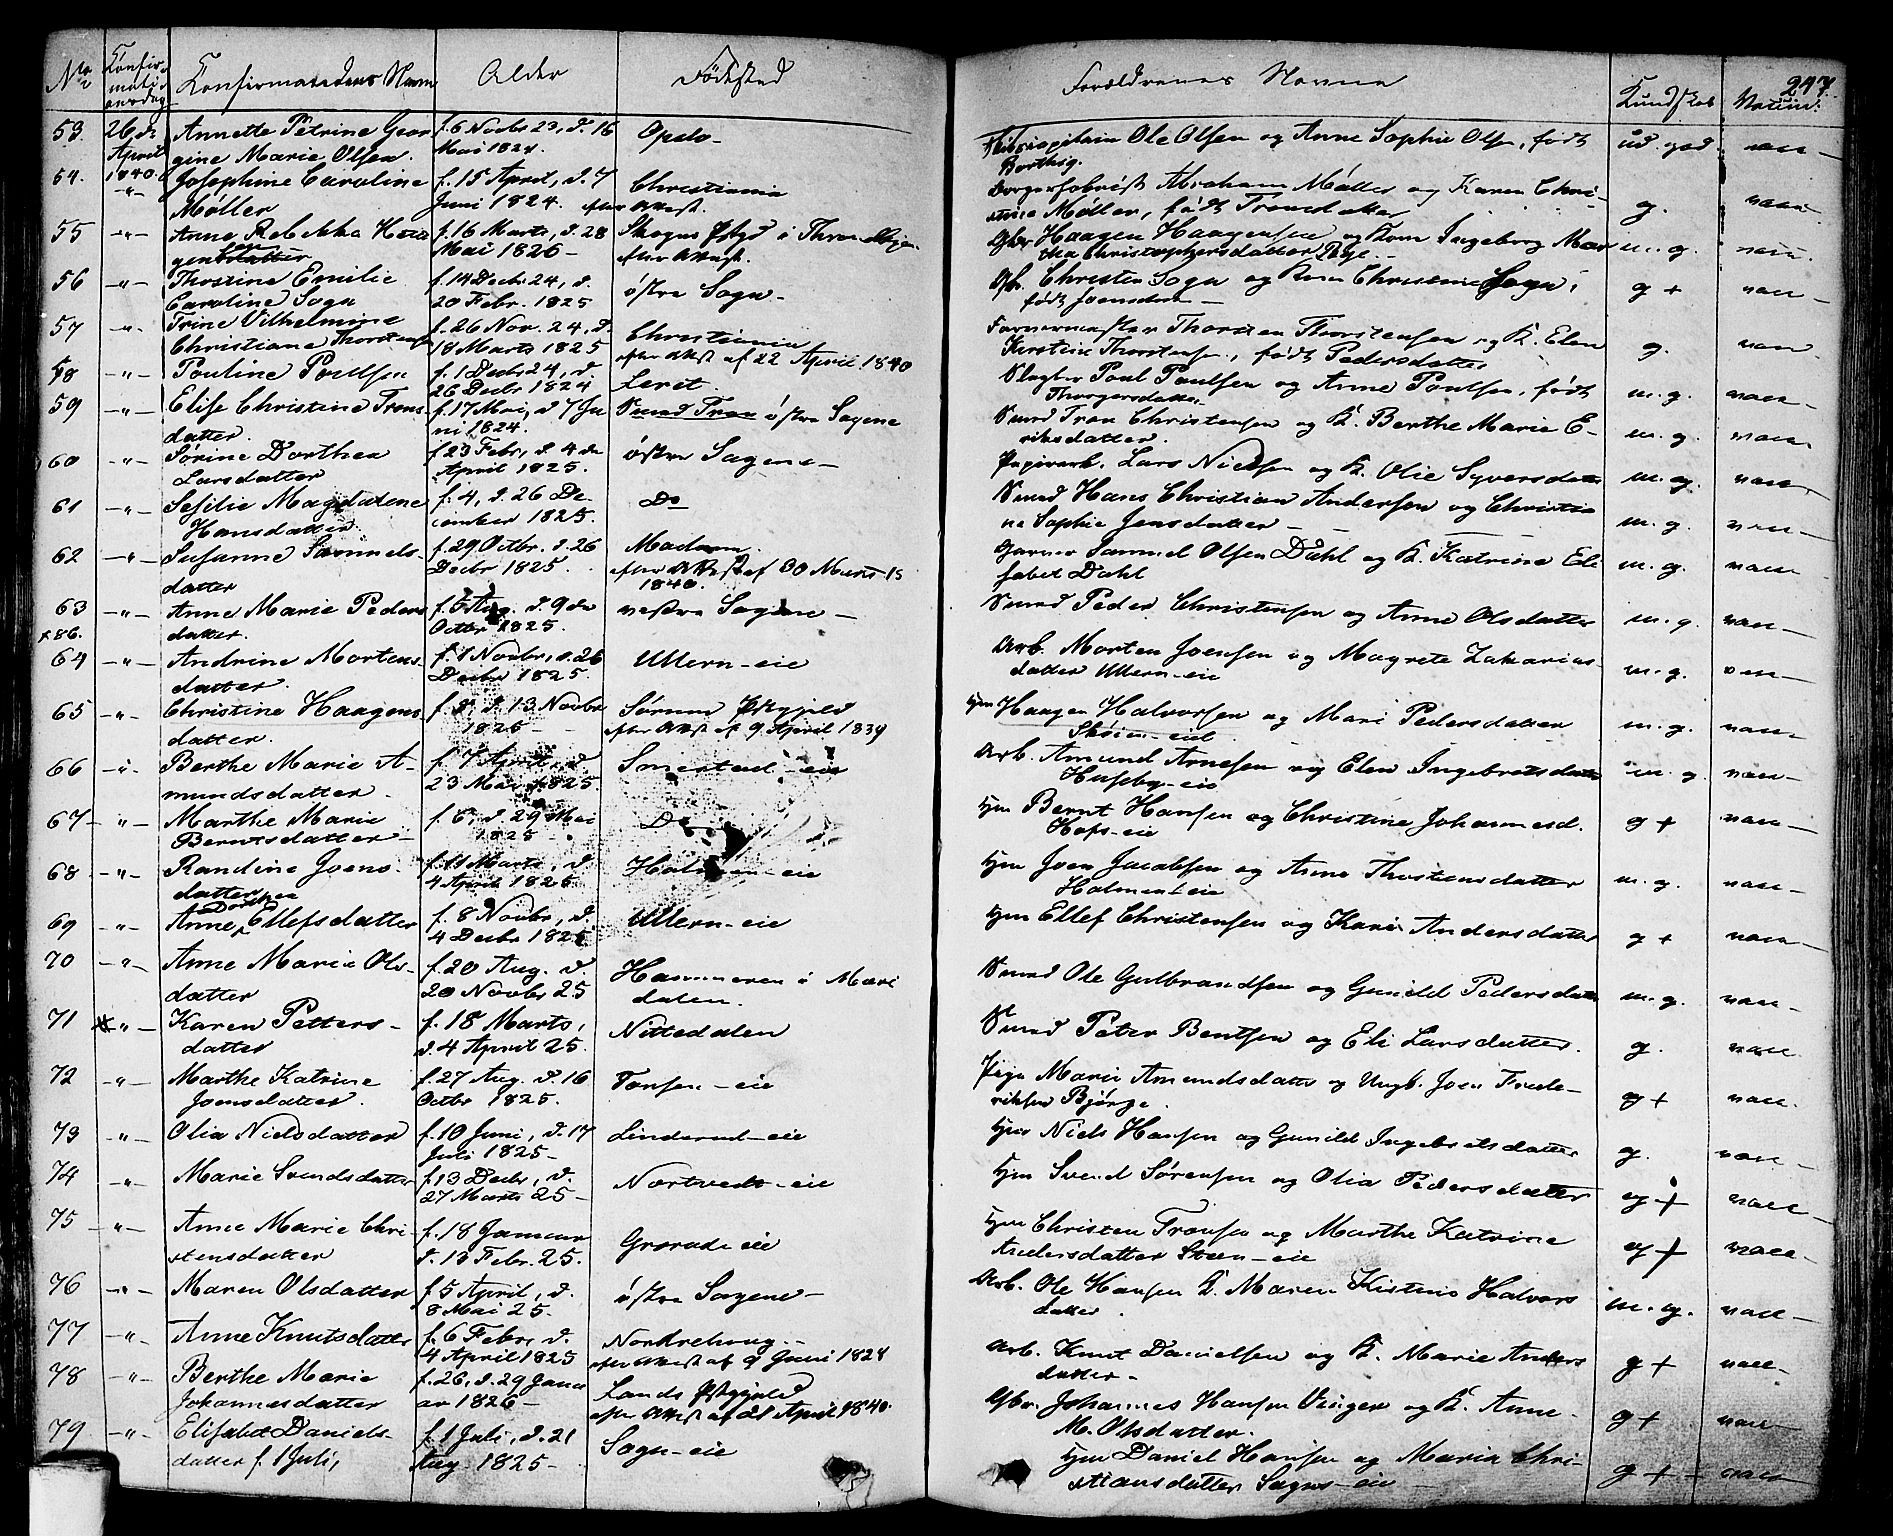 No
Confir-
mati-
onsdag
Confirmatedens Navn
Alder
Fødested
Forældrenes Navne
Kundskab
Vaccine.
247.
53.
26de
April
1840.
Annette Petrine Geor
gine Marie Olsen.
f. 6 Novbr 23, d. 16
Mai 1824.
Opslo -
Ole Olsen og Anne Sophie Olsen, født
ud. god
vacc -
54.
-"-
Josephine Caroline
Møller
f. 15 April, d. 7
Juni 1824.
Christiania
efter Attest.
Abraham Møller og Karen Chri-
stine Møller, født
g.
vacc -
55
-"-
Anne Rebekka Haa
gensdatter
f. 16 Marts, d. 28
Mai 1826 -
Skogns Pstgd i Throndhjem
efter Attest.
Haagen Haagensen og Kone Ingeborg Mar
tha Christophersdatter
m. g.
vacc.
56
-"-
Thorine Emilie
Caroline Sogn
f. 14 Decbr 24, d.
20 Febr. 1825
østre Sogn -
Christen Sogn og Kone Christine Sogn,
født Joensdatter -
g +
vacc -
57
-"-
Trine Vilhelmine
Christiane Thorstensen
f. 26 Nov. 24, d.
18 Marts 1825
Christiania
efter Attest af 22 April 1840
Thorsten Thorstensen og K. Elen
Kirstine Thorstensen, født Pedersdatter
g.
vacc -
58
-"-
Pouline Poulsen
f. 1 Decbr 24, d.
26 Decbr 1824
Slagter Poul Poulsen og Anne Poulsen, født
Thorgersdatter
m. g.
vacc -
59
-"-
Elise Christine Trons
datter.
f. 17 Mai, d 7 Ju
ni 1824.
østre Sagene
Smed Tron Christensen og K. Berthe Marie E-
riksdatter.
m. g.
vacc -
60
-"-
Sørine Dorthea
Larsdatter
f. 23 Febr, d. 4de
April 1825.
østre Sagene -
Papirarb. Lars Nielsen og K. Olie Syversdatter
m. g.
vacc -
61
-"-
Sesilie Magdalene
Hansdatter
f. 4, d. 26 De-
cember 1825.
Do
Smed Hans Christian Andersen og Christia
ne Sophie Jensdatter -
m. g.
vacc -
62
-"-
Susanne Samuels-
datter
f. 29 Octbr. d. 26
Decbr 1825.
efter Attest af 30 Marts
1840.
Garver Samuel Olsen Dahl og K. Katrine Eli
sabet Dahl
m. g.
vacc -
63
+86.
-"-
Anne Marie Peders
datter.
f. 6 Aug. d. 9de
Octbr 1825.
vestre Sagene -
Smed Peder Christensen og Anne Olsdatter
m. g.
vacc -
64
-"-
Andrine Mortens-
datter.
f. 7 Novbr, d. 26
Decbr 1825.
Ullern-eie
Arb. Morten Joensen og Magrete Zakarias-
datter Ullern-eie
m. g.
vacc -
65
-"-
Christine Haagens
datter.
f. 8, d. 13 Novbr
1825 -
Sørums Pstgjeld
efter Attest af 9 April 1839
Hm Haagen Halvorsen og Mari Pedersdatter
Skøien-eie
m. g.
vacc -
66
-"-
Berthe Marie A-
mundsdatter.
f. 7 April, d.
23 Mai 1825.
Smestad-eie
Arb. Amund Arnesen og Elen Ingebretsdatter
Huseby-eie
m. g.
vacc -
67
-"-
Marthe Marie
Berntsdatter -
f. 6, d. 29 Mai
1825
Do
Hm Bernt Hansen og Christine Johannesd.
Hofs-eie
g +
vacc -
68
-"-
Randine Joens-
datter
f. 11 Marts, d.
4 April 1825.
Holmen-eie
Hm Joen Jacobsen og Anne Thostensdatter
Holmen-eie
m. g.
vacc -
69
-"-
Dorthea
Anne Ellefsdatter
f. 8 Novbr, d.
4 Decbr 1825
Ullern-eie
Hm Ellef Christensen og Kari Andersdatter
g +
vacc -
70
-"-
Anne Marie Ols-
datter
f. 20 Aug. d.
20 Novbr 25
Hammeren i Mari
dalen.
Smed Ole Gulbrandsen og Gunild Pedersdatter
m. g.
vacc -
71
-"-
Karen Petters-
datter
f. 18 Marts,
d. 4 April 25.
Nittedalen
Smed Peter Bentsen og Eli Larsdatter.
g.
vacc.
72
-"-
Marthe Katrine
Joensdatter.
f. 27 Aug. d. 16
Octbr 1825.
Tonsen-eie
Pige Marie Amundsdatter og Ungk. Joen Frede-
riksen Bjørge.
g +
vacc.
73
-"-
Olia Nielsdatter
f. 10 Juni, d. 17
Juli 1825 -
Linderud-eie
Hm Niels Hansen og Gunild Ingebretsdatter
g.
vacc -
74
-"-
Marie Svendsdatter
f. 13 Decbr, d.
27 Marts 25 -
Nortvedt-eie
Hm Svend Sørensen og Olia Pedersdatter
g +
vacc -
75
-"-
Anne Marie Chri-
stensdatter
f. 18 Januar
d. 13 Febr. 25.
Grorud-eie
Hm Christen Tronsen og Marthe Katrine
Andersdatter Steen-eie
g +
vacc -
76
-"-
Maren Olsdatter
f. 5 April, d.
8 Mai 25 -
østre Sagene -
Arb. Ole Hansen K. Maren Kistine Halvors
datter.
m. g.
vacc -
77
-"-
Anne Knutsdatter
f. 6 Febr, d.
4 April 1825
Nordrehoug -
efter Attest af 9 Juni 1828
Arb. Knut Danielsen og K. Marie Anders
datter -
g +
vacc -
78
-"-
Berthe Marie
Johannesdatter
f. 26, d. 29 Janu
ar 1826 -
Lands Pstgjeld
efter Attest af 21 April 1840.
Johannes Hansen Vinger og K. Anne
M. Olsdatter.
g +
vacc -
79
-"-
Elisabet Daniels-
datter f. 1 Juli,
f. 1 Juli, d. 21
Aug. 1825 -
Sogn-eie
Hm Daniel Hansen og Maria Chri-
stiansdatter Sogns-eie -
g +
vacc